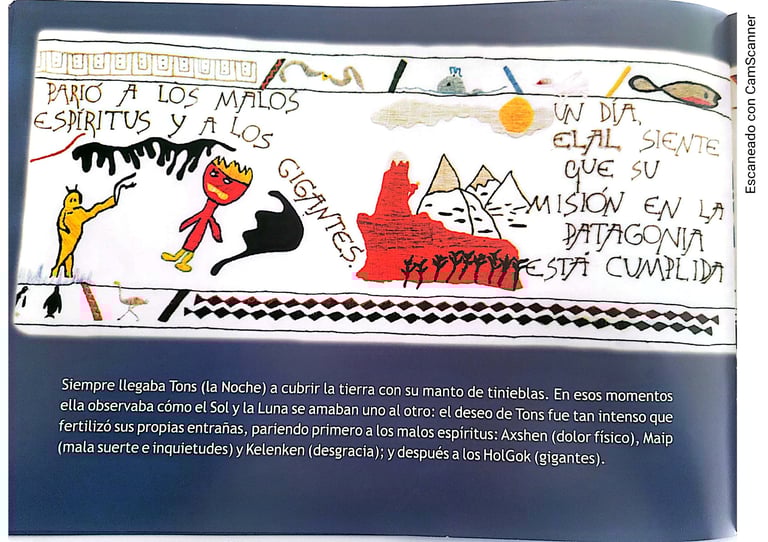 PARIÓ A LOS MALOS
ESPÍRITUS Y A LOS
GIGANTES.
UN DÍA,
ELAL SIENTE
QUE SU
MISIÓN EN LA
PATAGONIA
ESTÁ CUMPLIDA
Siempre llegaba Tons (la Noche) a cubrir la tierra con su manto de tinieblas. En esos momentos
ella observaba cómo el Sol y la Luna se amaban uno al otro: el deseo de Tons fue tan intenso que
fertilizó sus propias entrañas, pariendo primero a los malos espíritus: Axshen (dolor físico), Maip
(mala suerte e inquietudes) y Kelenken (desgracia); y después a los HolGok (gigantes).
Escaneado con CamScanner